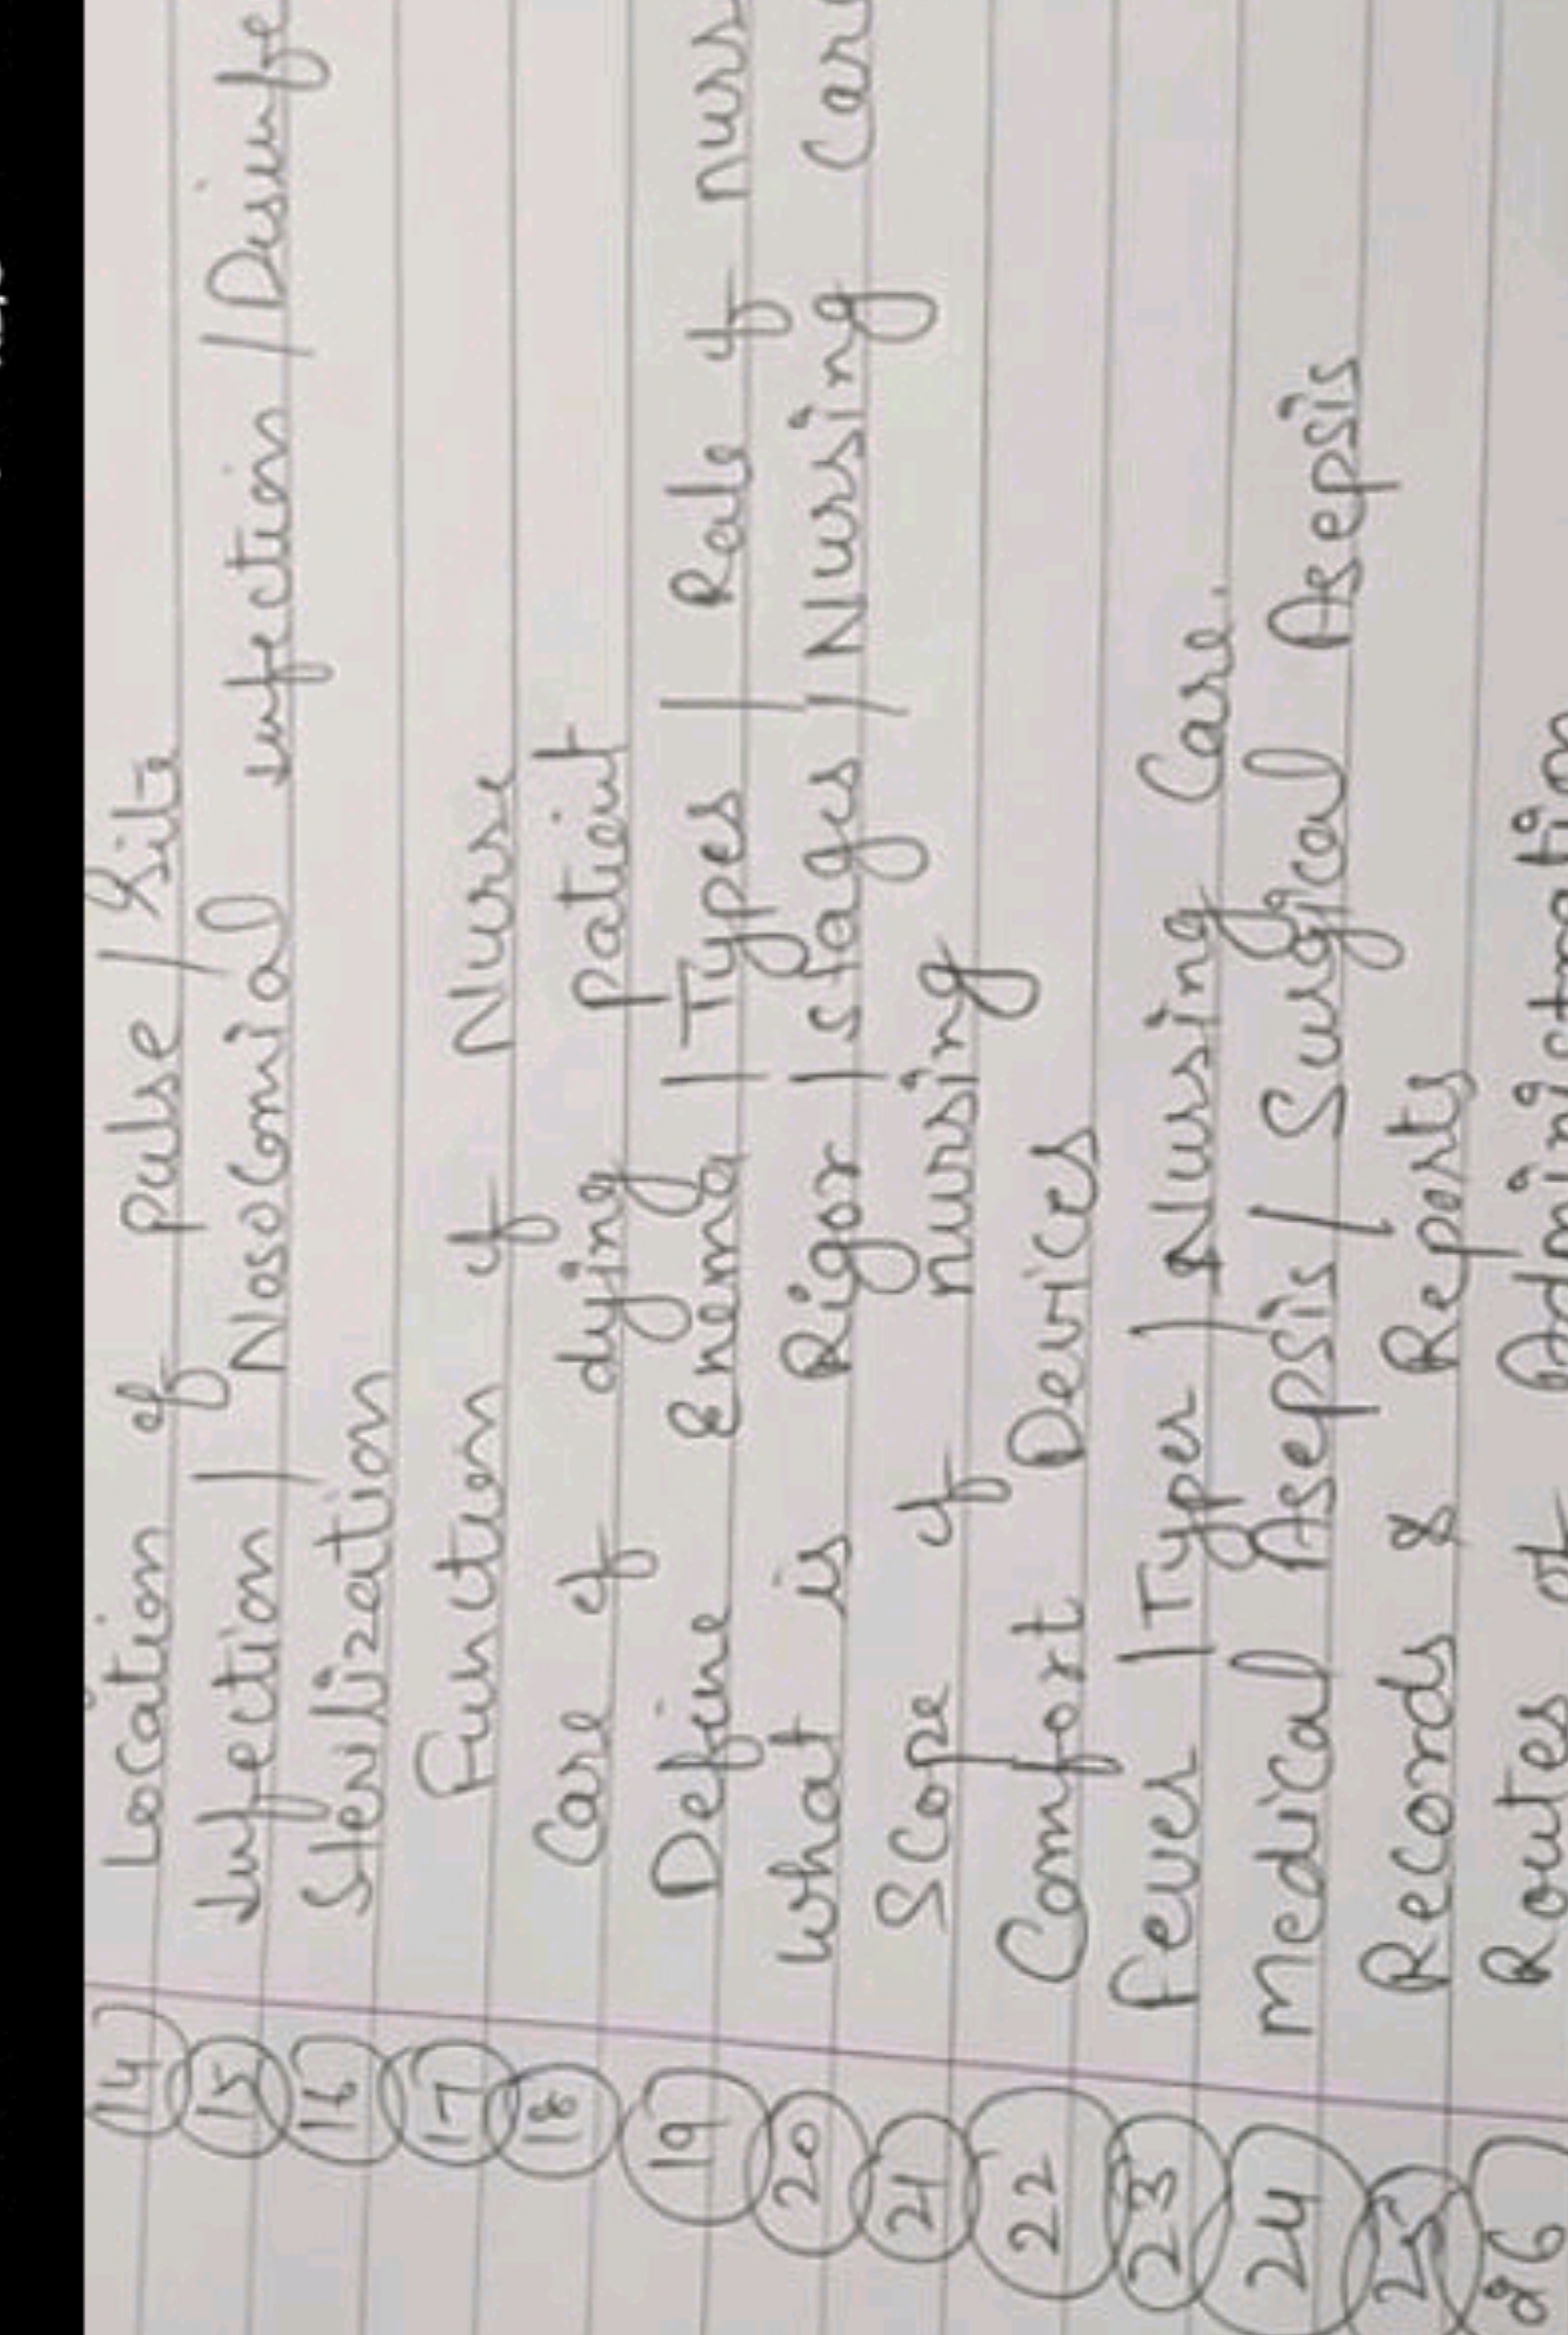 14 Location of pulse / Site
15 Infection / Nosocomial infection / Disinfe
16 Sterilization
17 Function of Nurse
18 Care of dying patient
19 Define Enema | Types | Role of nurs
20 What is Rigor | stages | Nursing Care
21 Scope of nursing
22 Comfort Devices
23 fever | Types | Nursing Care.
24 medical Asepsis / Surgical Asepsis
25 Records & Reports
26 Routes of Administration